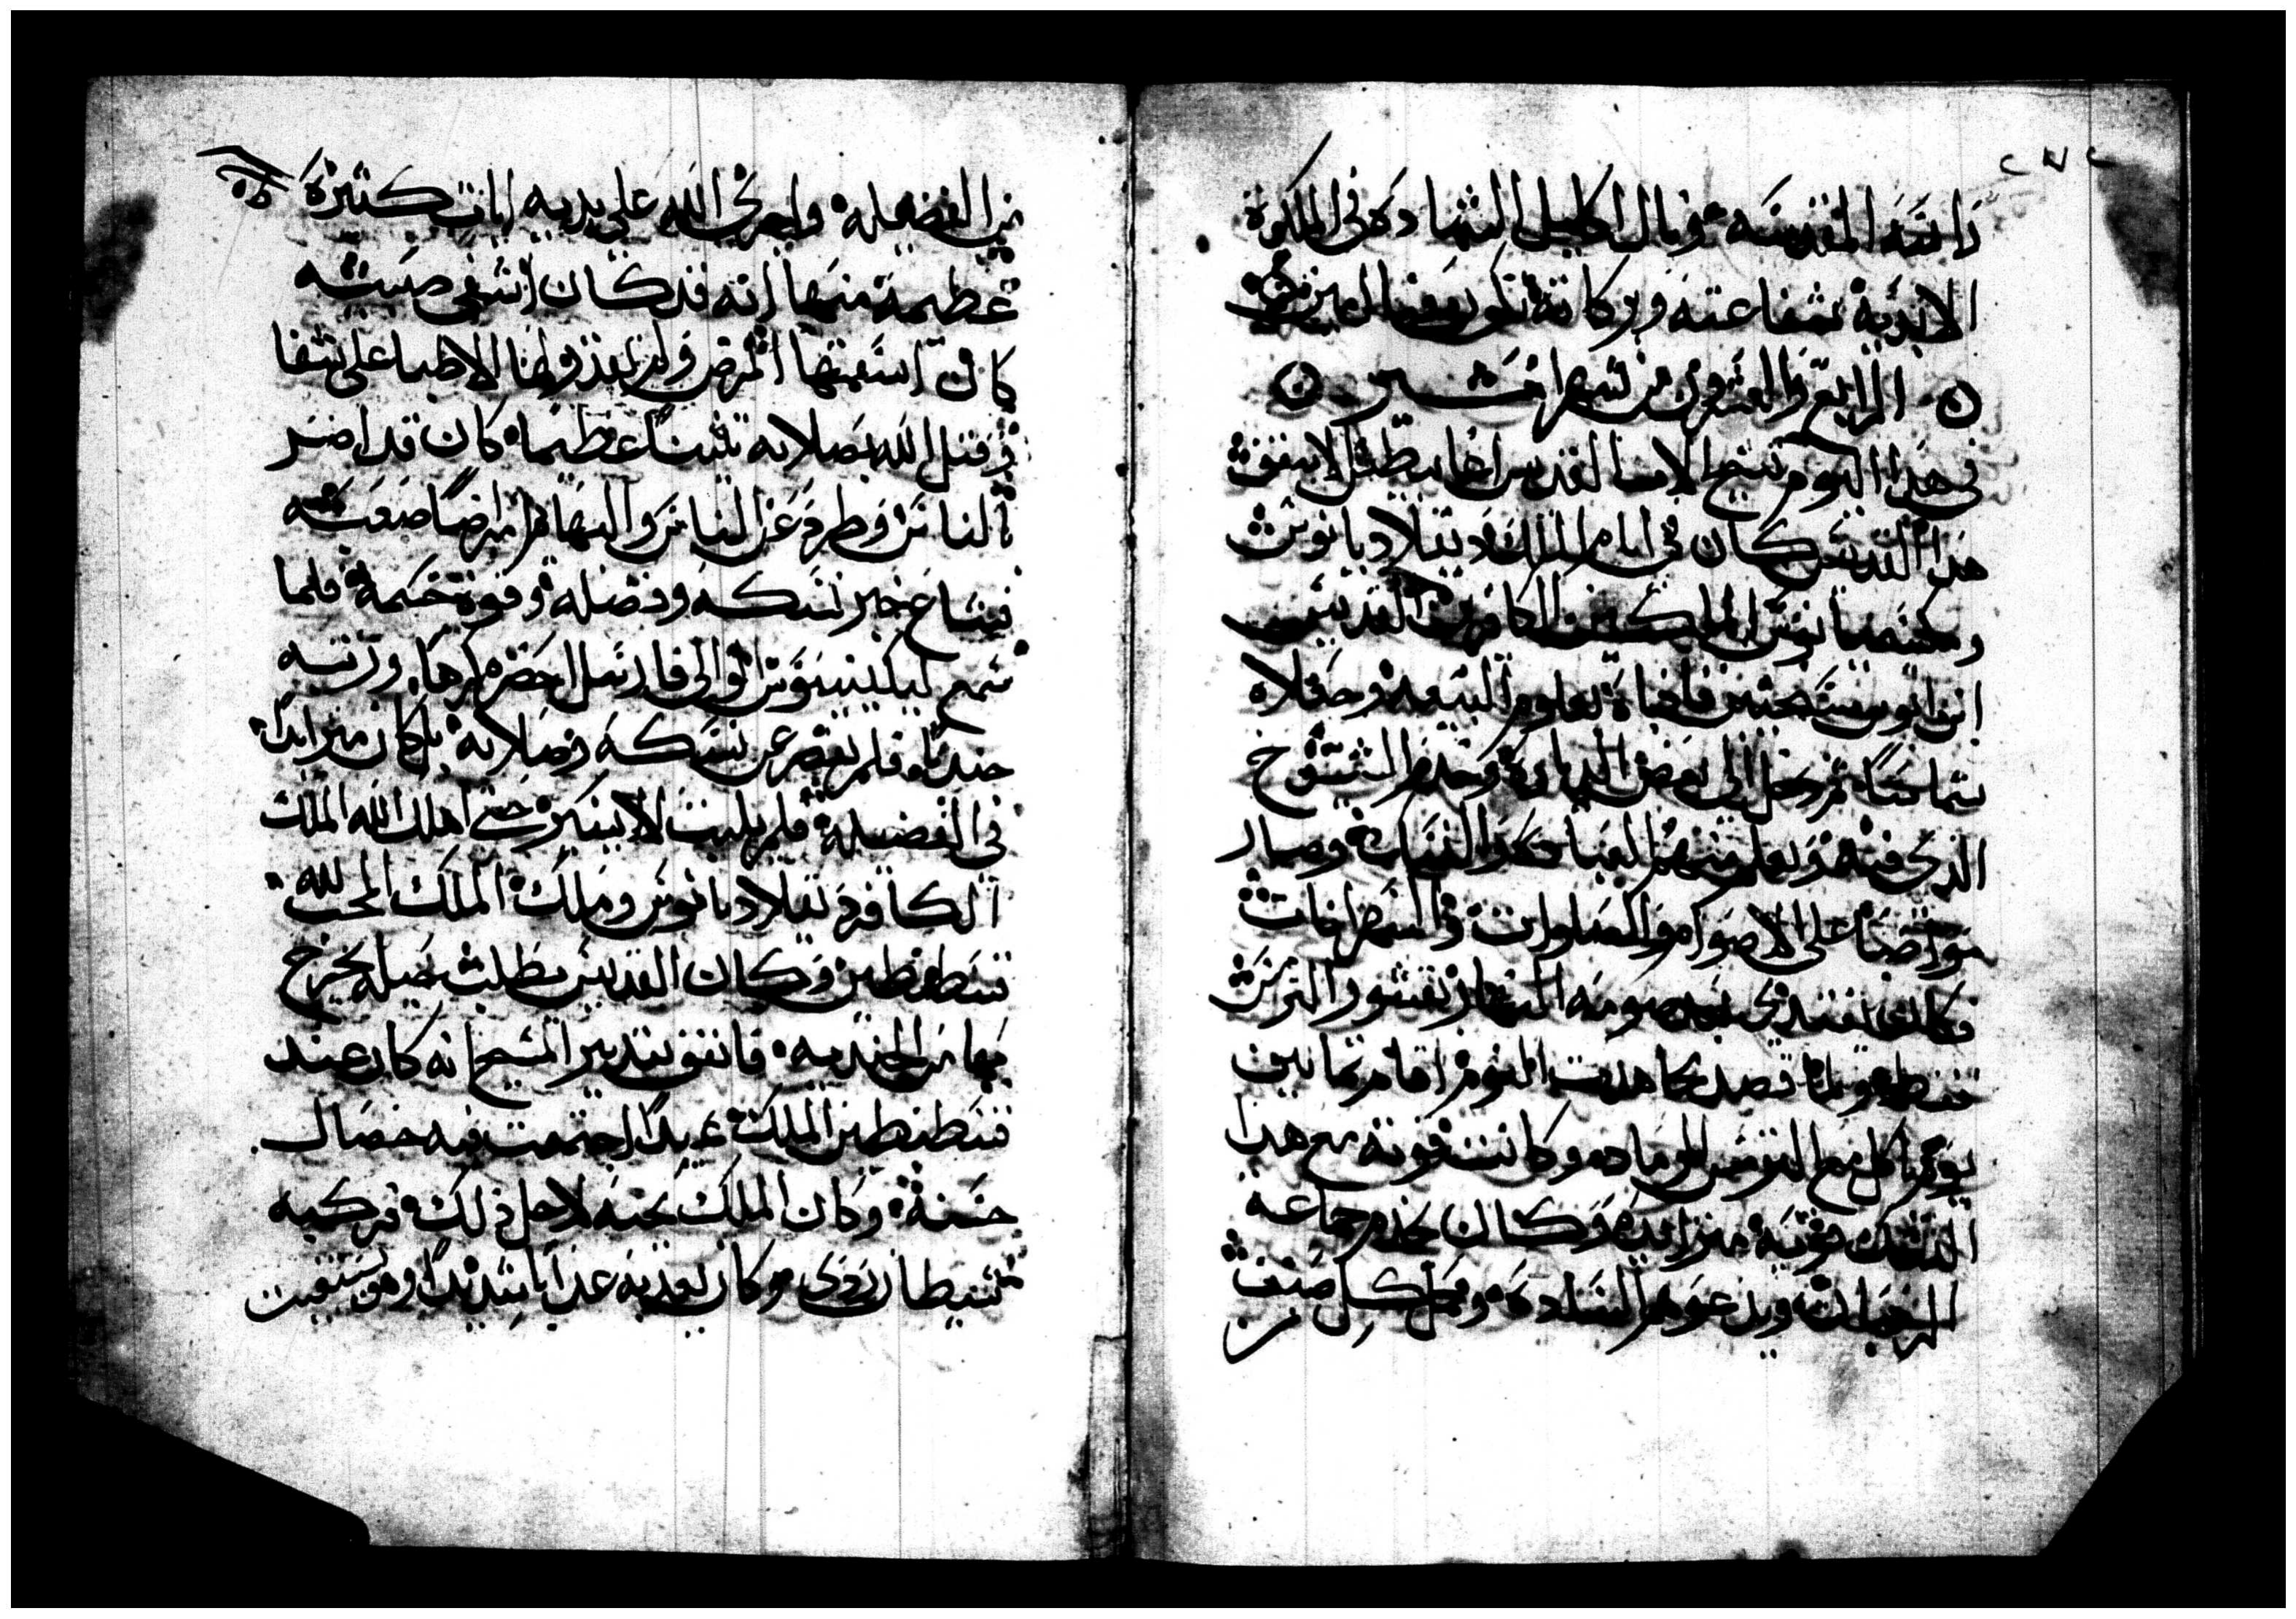 راسه المقدسه ونال اكليل الشهاده في الملكوة
الابدية شفاعته وبركاته تكون معنا امين
الرابع والعشرون من شهر امشير
في هذا اليوم تنيح الاب القديس اغابيطس الاسقف
هذا القديس كان في ايام الملك ديقلاديانوس
ومكسيميانوس الملكين الكافرين القديس
ابن ابوين مسيحيين فادباه بعلوم البيعة وجعلاه
شماسًا ثم دخل الي بعض الديارة وخدم الشيوخ
الذي فيه وتعلم منهم العبادة والنسك وصار
مواضبًا على الاصوام والصلوات والسهرانات
وكان يغتدي بعد صومه النهار بقشور الترمس
فقط ولما قصد مجاهدت النوم اقام ثمانين
يومًا ياكل مع الترمس الرماده وكانت قوته مع هذا
النسك قوية متزايدة وكان يخدم جماعة
الرهبان ويدعوهم السادة وكمل كل صنف
من الفضيله واجرى الله على يديه ايات كثيرة
عظيمة منها انه قد كان اشفى صبيه
كان اسقمتها المرض ولم يقدروا الاطبا على شفا
وقتل الله بصلاته تنينًا عظيمًا كان قد اضر
الناس وطرد عن الناس والبهايم امراضًا صعبه
فشاع خبر نسكه وفضله وقوة حكمه فلما
سمع ليكينيوس الوالي فارسل احضره كرها ورتبه
جنديًا فلم يقصر عن نسكه وصلاته بل كان متزايدًا
في الفضيلة فلم يلبث الا يسيرحتى اهلك الله الملك
الكافر ديقلاديانوس وملك الملك المحب لله
قسطنطين وكان القديس يطلب حيلة يخرج
بها من الجنديه فاتفق بتدبير المسيح انه كان عند
قسطنطين الملك عبدًا اجتمعت فيه خصال
حسنة وكان الملك يحبه لاجل ذلك فركبه
شيطان ردى وكان يعذبه عذابًا شديدًا وهو يستغيث